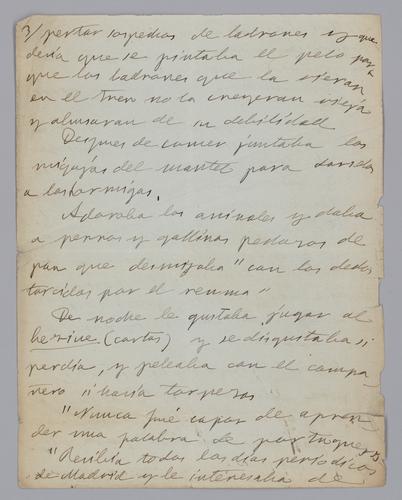 3/ pertar sospechas de ladrones y que
decía que se pintaba el pelo para
que los ladrones que la vieran
en el tren no la creyeran vieja
y abusaran de su debilidad
Despues de comer juntaba las
migajas del mantel para darselas
a las hormigas.
Adoraba los animales y daba
a perros y gallinas pedazos de
pan que desmigaba "con los dedos
torcidos por el reuma"
De noche le gustaba jugar al
(cartas) y se disgustaba si
perdía, y peleaba con el compa-
ñero si hacía torpezas
"Nunca fué capaz de apren
der una palabra de portugues"
"Recibia todos los dias periodicos
de Madrid y le interesaba de